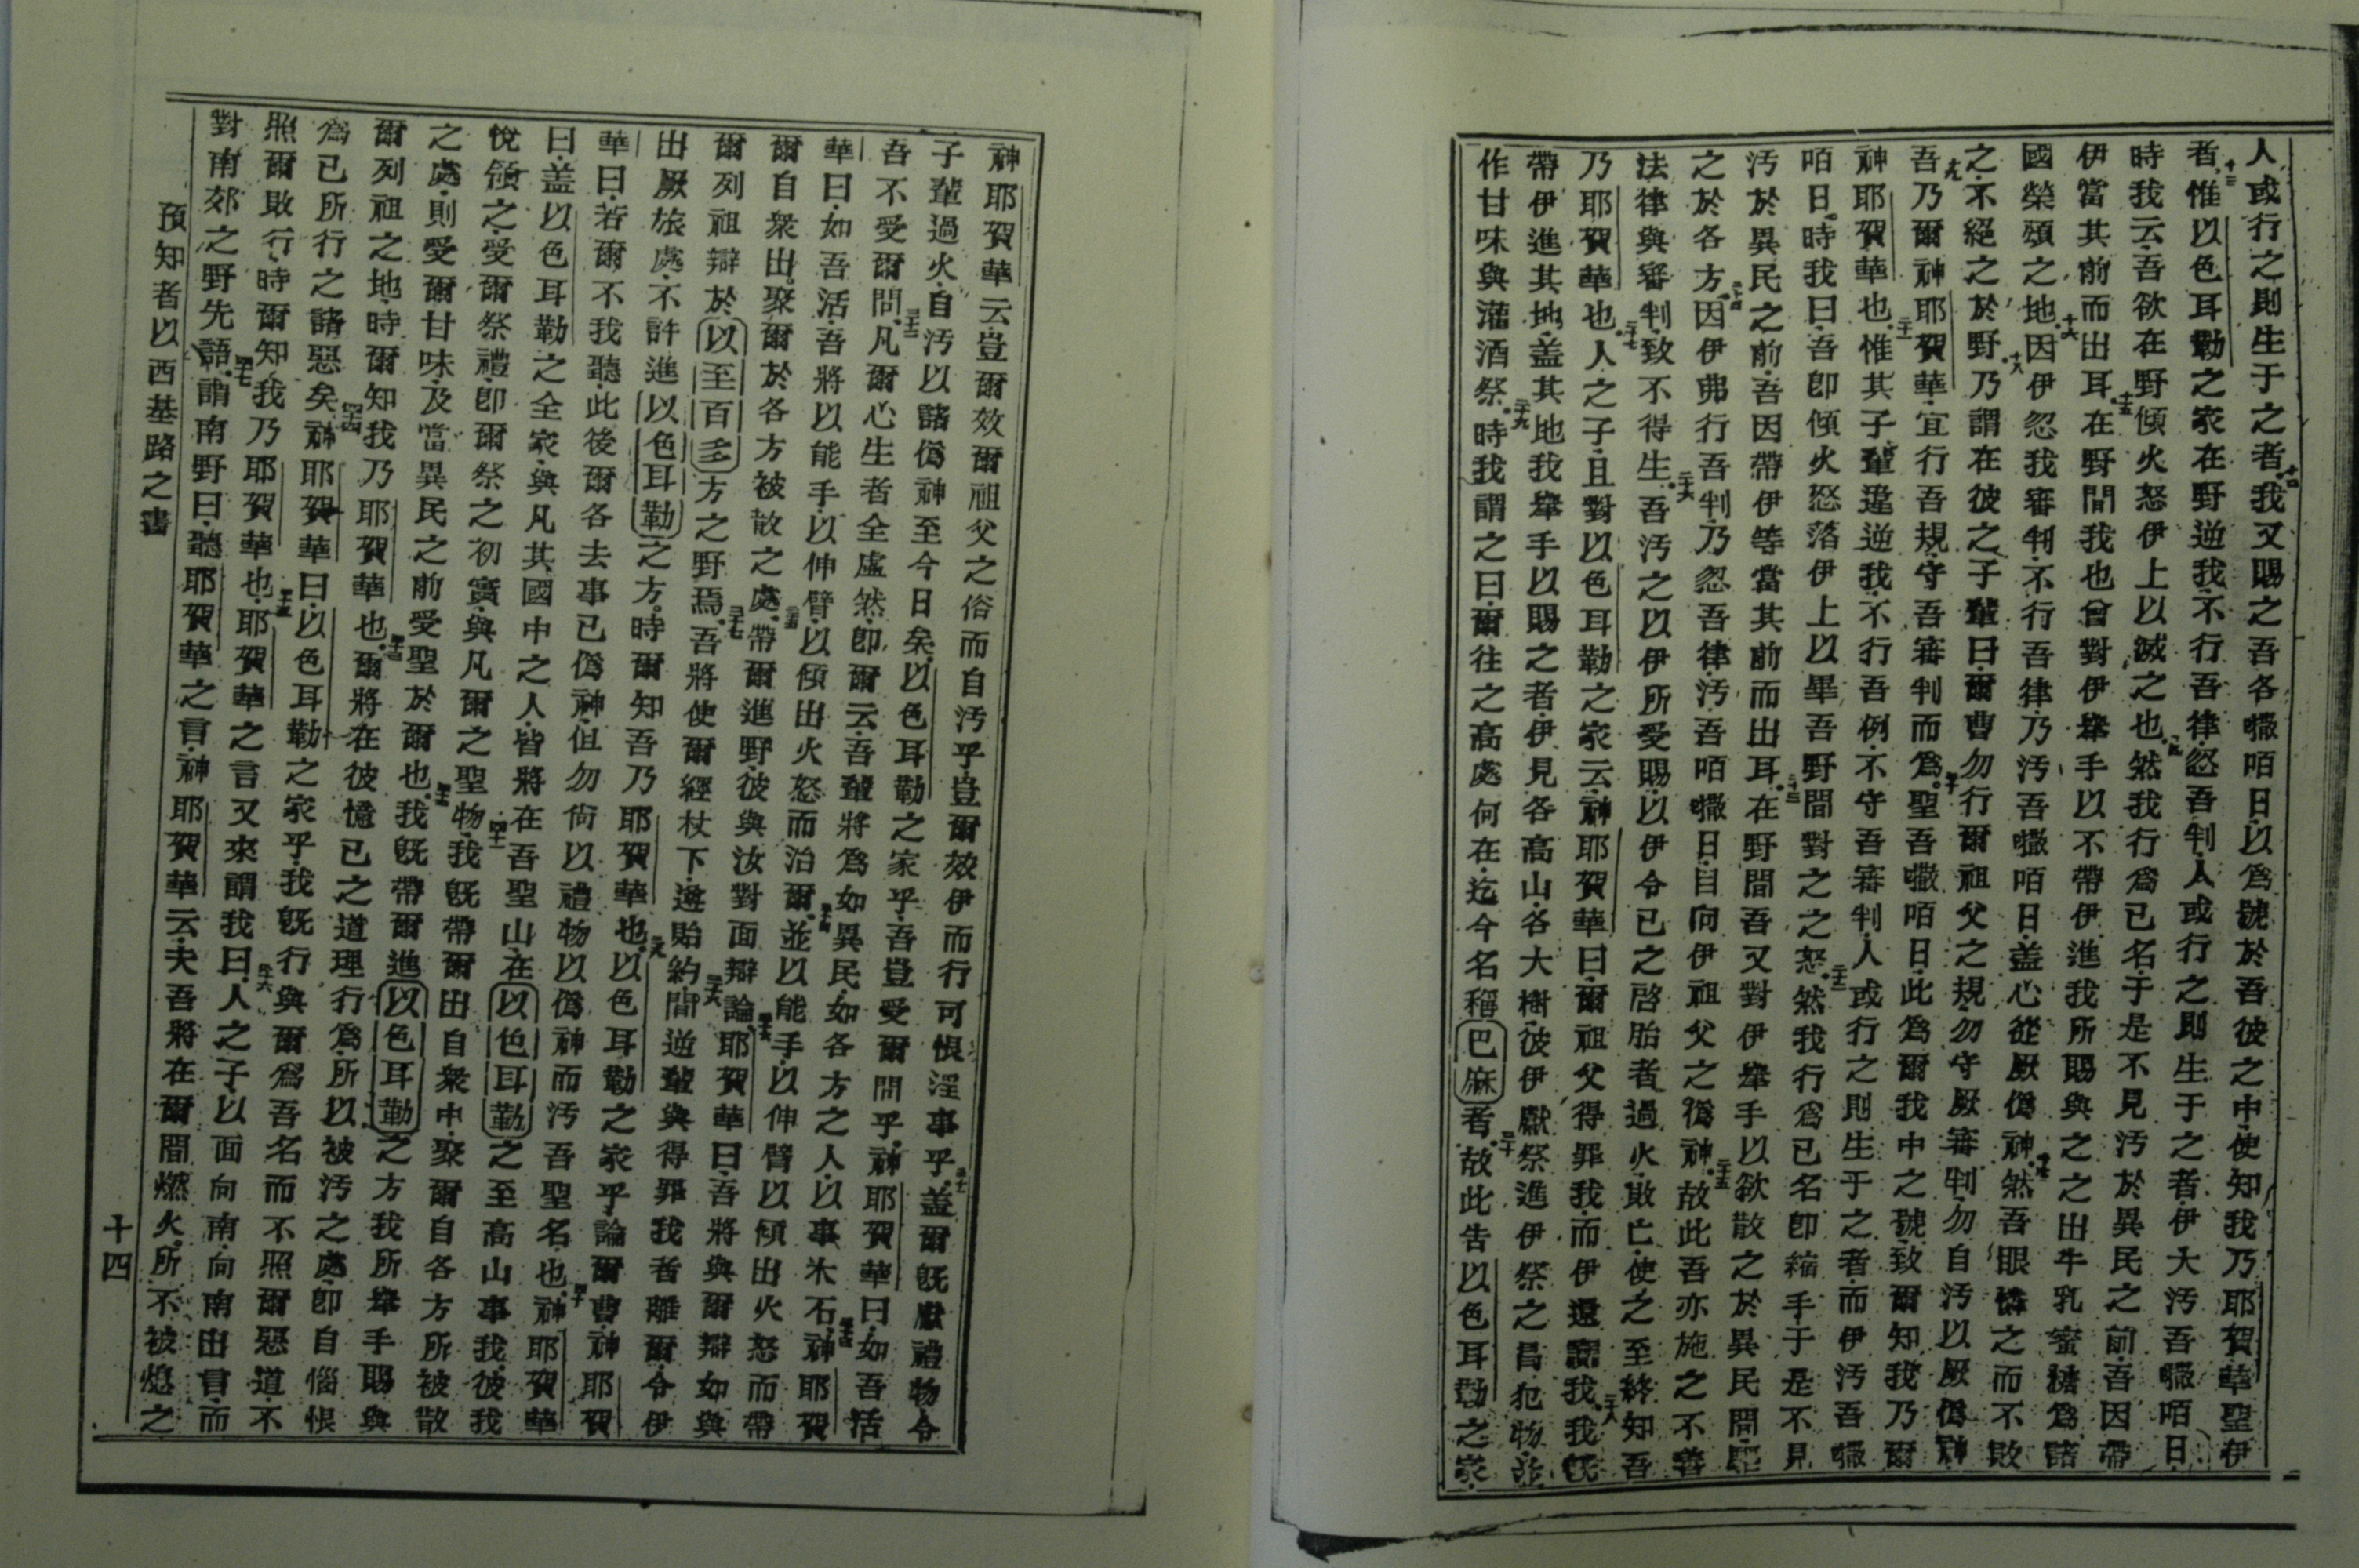 人或行之則生于之者十二我又賜之吾各㘔咟日以爲號於吾彼之中使知我乃耶賀華聖伊
者十三惟以色耳勒之家在野逆我不行吾律忽吾判人或行之則生于之者伊大汚吾㘔咟日
時我云吾欲在野傾火怒伊上以滅之也十四然我行爲己名于是不見汚於異民之前吾因帶
伊當其前而出耳十五在野間我也曾對伊舉手以不帶伊進我所賜與之之出牛乳蜜糖爲諸
國榮頌之地十六因伊忽我審判不行吾律乃汚吾㘔咟日蓋心從厥僞神十七然吾眼憐之而不敗
之不絕之於野十八乃謂在彼之子輩曰爾曹勿行爾祖父之規勿守厥審判勿自汚以厥僞神
十九吾乃爾神耶賀華宜行吾規守吾審判而爲二十聖吾㘔咟日此爲爾我中之號致爾知我乃爾
神耶賀華也二十一惟其子輩違逆我不行吾例不守吾審判人或行之則生于之者而伊汚吾㘔
咟日時我曰吾卽傾火怒落伊上以畢吾野間對之之怒二十二然我行爲己名卽縮手于是不見
汚於異民之前吾因帶伊等當其前而出耳二十三在野間吾又對伊舉手以欲散之於異民間驅
之於各方二十四因伊弗行吾判乃忽吾律汚吾咟㘔日目向伊祖父之僞神二十五故此吾亦施之不善
法律與審判致不得生二十六吾汚之以伊所受賜以伊令己之啓胎者過火敗亡使之至終知吾
乃耶賀華也二十七人之子且對以色耳勒之家云神耶賀華曰爾祖父得罪我而伊還謗我二十八我旣
帶伊進其地蓋其地我舉手以賜之者伊見各高山各大樹彼伊獻祭進伊祭之昌犯物並
作甘味與灌酒祭二十九時我謂之曰爾往之高處何在迄今名稱巴麻者三十故此告以色耳勒之家
神耶賀華云豈爾效爾祖父之俗而自汚乎豈爾效伊而行可恨淫事乎三十一蓋爾旣獻禮物令
子輩過火自汚以諸僞神至今日矣以色耳勒之家乎吾豈受爾問乎神耶賀華曰如吾活
吾不受爾問三十二凡爾心生者全虛然卽爾云吾輩將爲如異民如各方之人以事木石三十三神耶賀
華曰如吾活吾將以能手以伸臂以傾出火怒而治爾三十四並以能手以伸臂以傾出火怒而帶
爾自衆出聚爾於各方被散之處三十五帶爾進野彼與汝對面辯論三十六耶賀華曰吾將與爾辯如與
爾列祖辯於以至百多方之野焉三十七吾將使爾經杖下進貽約三十八間逆輩與得罪我者離爾令伊
出厥旅處不許進以色耳勒之方時爾知吾乃耶賀華也三十九以色耳勒之家乎論爾曹神耶賀
華曰若爾不我聽此後爾各去事己僞神但勿尙以禮物以僞神而汚吾聖名也四十神耶賀華
曰蓋以色耳勒之全家與凡其國中之人皆將在吾聖山在以色耳勒之至高山事我彼我
悅領之受爾祭禮卽爾祭之初實與凡爾之聖物四十一我旣帶爾出自衆中聚爾自各方所被散
之處則受爾甘味及當異民之前受聖於爾也四十二我旣帶爾進以色耳勒之方我所舉手賜與
爾列祖之地時爾知我乃耶賀華也四十三爾將在彼憶己之道理行爲所以被汚之處卽自惱恨
爲己所行之諸惡矣四十四神耶賀華曰以色耳勒之家乎我旣行與爾爲吾名而不照爾惡道不
照爾敗行時爾知我乃耶賀華也四十五耶賀華之言又來謂我曰四十六人之子以面向南向南出言而
對南郊之野先語四十七謂南野曰聽耶賀華之言神耶賀華云夫吾將在爾間燃火所不被熄之
預知者以西基路之書
十四